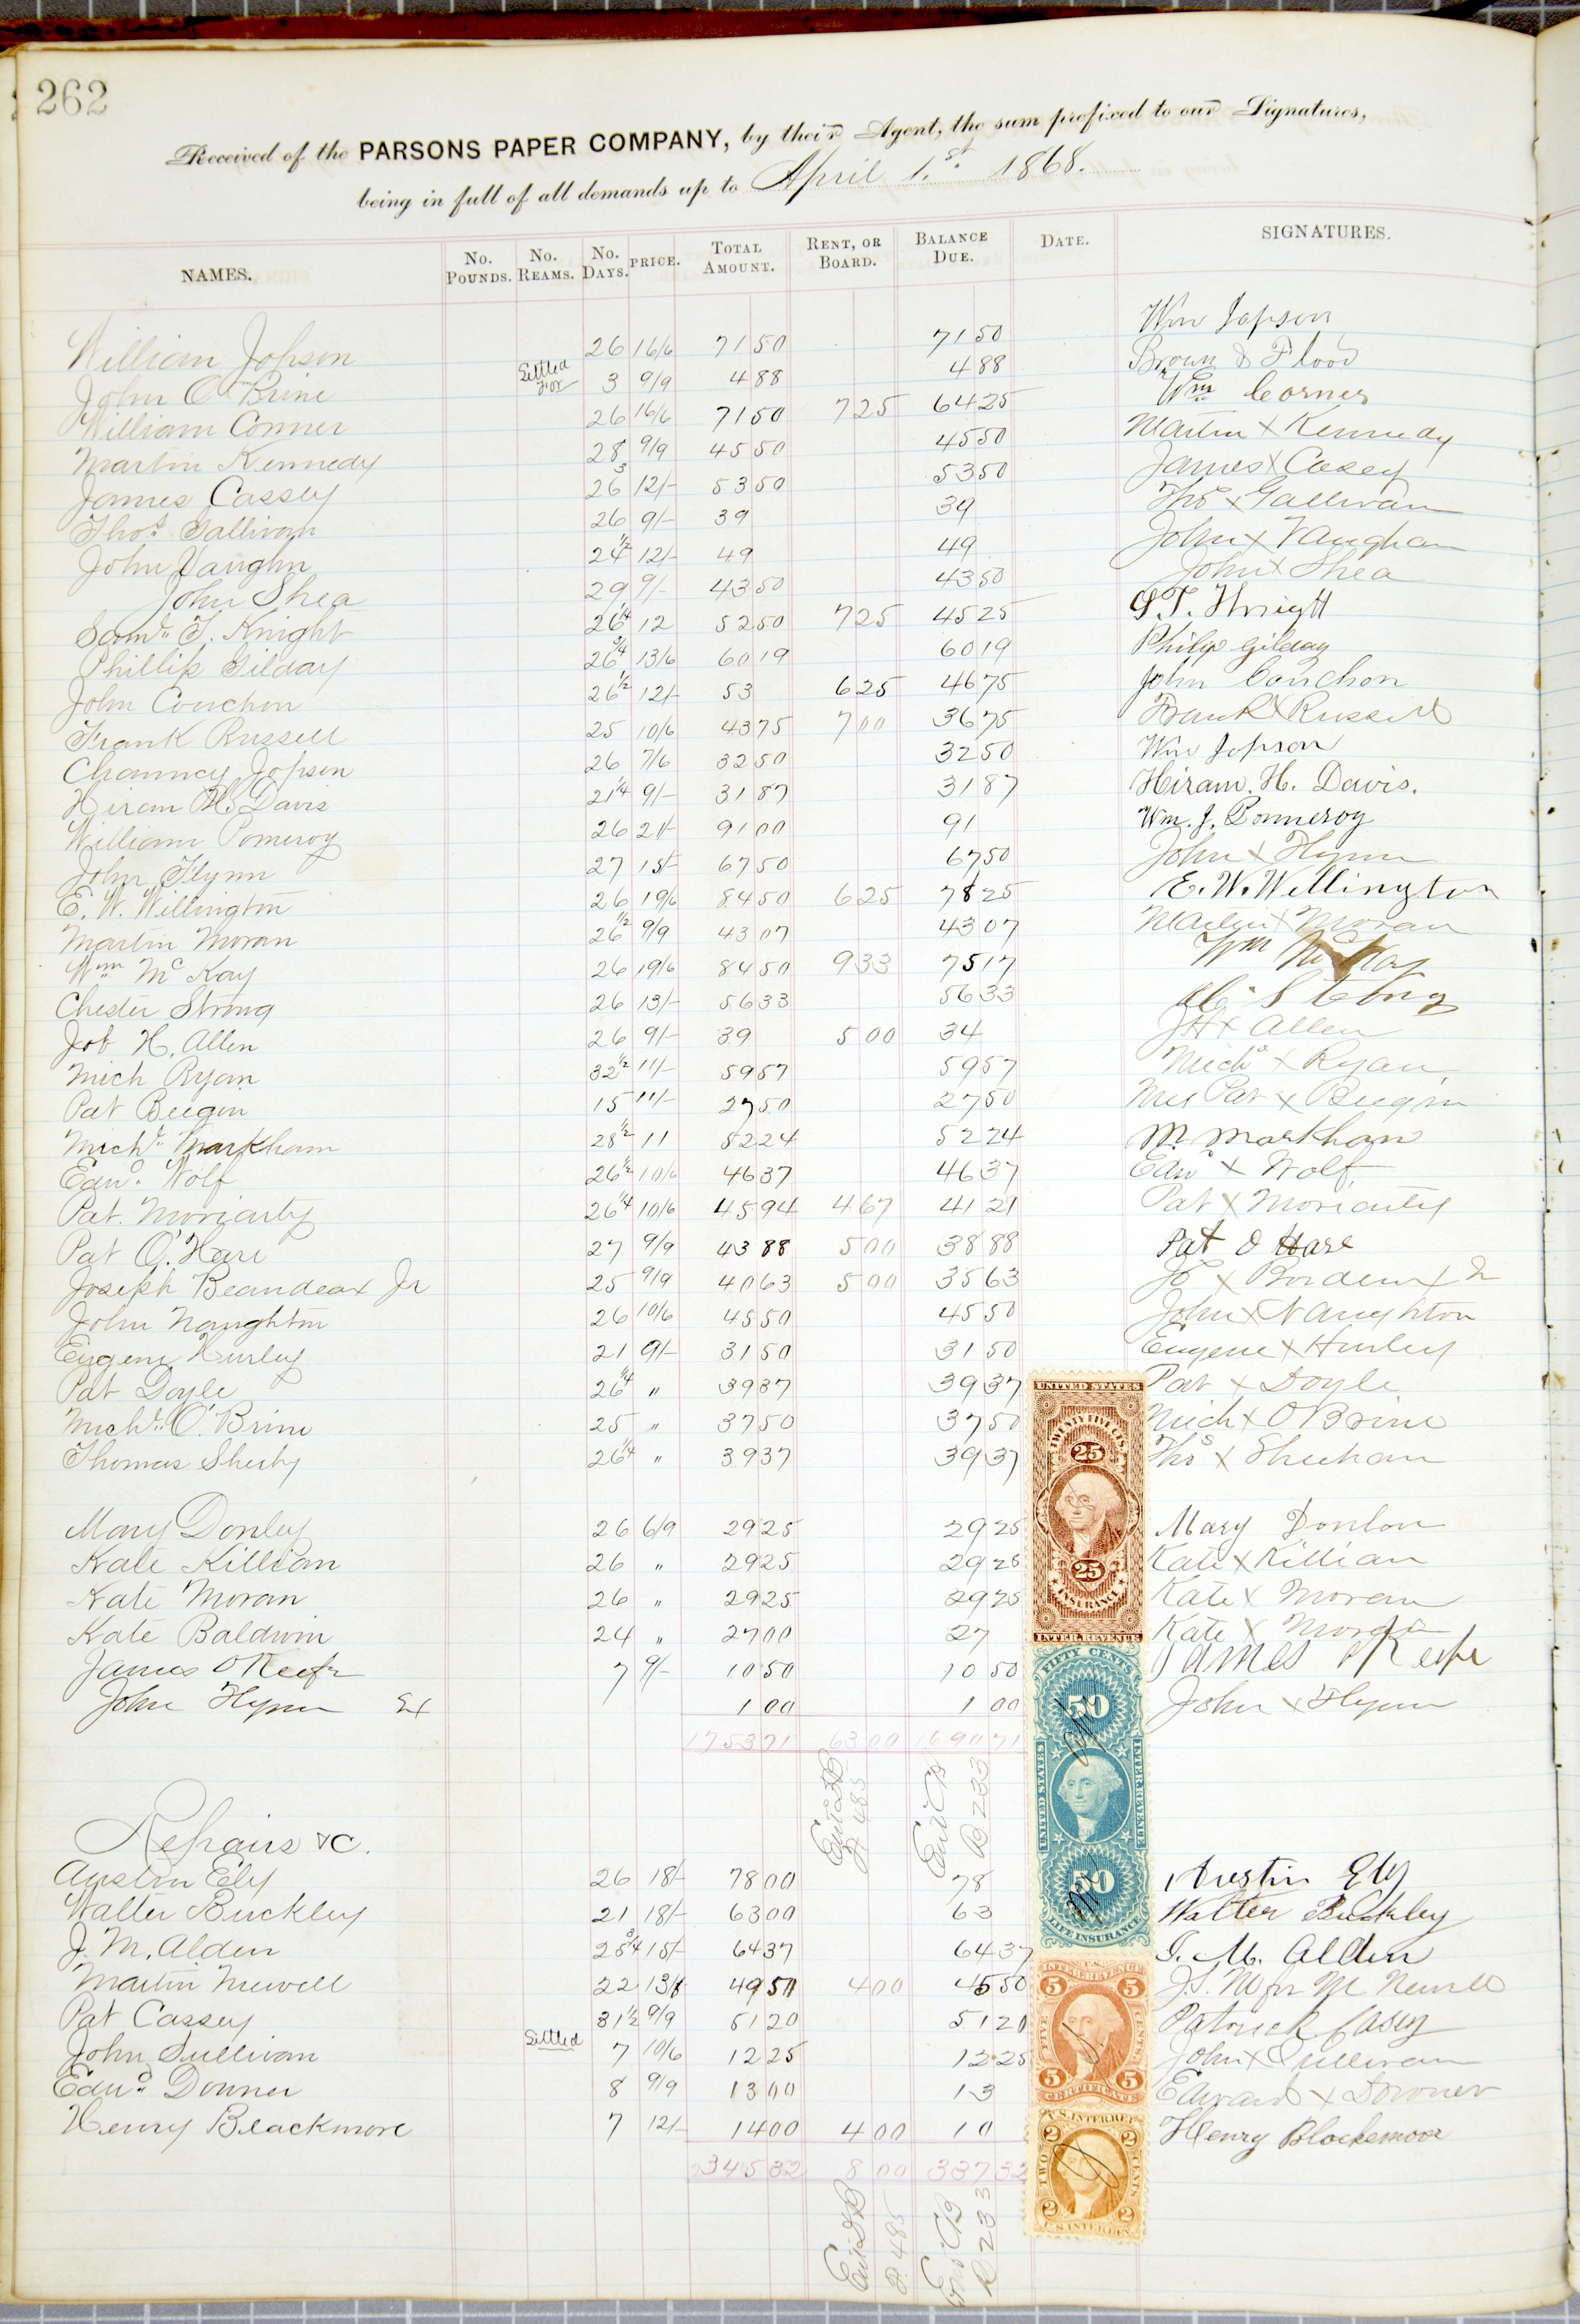 262
Received of the PARSONS PAPER COMPANY, by their Agent, the sum prefixed to our Signatures,
being in full of all demands up to April 1.st 1868.
NAMES. No. Pounds. No. Reams. No. Days. PRICE. Total Amount. Rent, or Board. Balance Due. Date. SIGNATURES.
William Jopson 26 16/6 71 50 71 50 Wm Jopson
John O'Brine Settled For 3 9/9 4 88 4 88 Brown & Flood
William Conner 26 16/6 71 50 7 25 64 25 Wm Corner
Martin Kennedy 28 9/9 45 50 45 50 Martin X Kennedy
James Cassey 26 3 12/- 53 50 53 50 James X Casey
Thos. Gallivan 26 9/- 39 39 Thos X Gallivan
John Vaughn 24 1/2 12/- 49 49 John X Vaughan
John Shea 29 9/- 43 50 43 50 John X Shea
Saml. T. Knight 26 1/4 12 52 50 7 25 45 25 S.T. Knight
Phillip Gilday 26 3/4 13/6 60 19 60 19 Philip Gilday
John Couchon 26 1/2 12/- 53 6 25 46 75 John Couchon
Frank Russell 25 10/6 43 75 7 00 36 75 Frank X Russell
Chauncy Jopson 26 7/6 32 50 32 50 Wm Jopson
Hiram H. Davis 21 1/4 9/- 31 87 31 87 Hiram. H. Davis.
William Pomeroy 26 21/- 91 00 91 Wm. J. Pommeroy
John Flynn 27 15/- 67 50 67 50 John X Flynn
E. W. Willington 26 19/6 84 50 6 25 78 25 E. W. Wellington
Martin Moran 26 1/2 9/9 43 07 43 07 Martin X Moran
Wm Mc Kay 26 19/6 84 50 9 33 75 17 Wm McKay
Chester Strong 26 13/- 56 33 56 33
Job H. Allen 26 9/- 39 5 00 34 JH X Allen
Mich Ryan 32 1/2 11/- 59 57 59 57 Michl X Ryan
Pat Beegin 15 11/- 27 50 27 50 Mrs Pat X Beegin
Michl. Markham 28 1/2 11 52 24 52 24 M Markham
Edwd. Wolf 26 1/2 10/6 46 37 46 37 Edwd X Wolf
Pat. Moriarty 26 1/4 10/6 45 94 4 67 41 21 Pat X Moriarty
Pat O'Hare 27 9/9 43 88 5 00 38 88 Pat O Hare
Joseph Beaudeax Jr 25 9/9 40 63 5 00 35 63 Jo X Bordeux Jr
John Naughton 26 10/6 45 50 45 50 John X Naughton
Eugene Hurley 21 9/- 31 50 31 50 Eugene X Hurley
Pat Doyle 26 1/4 " 39 37 39 37 Pat X Doyle
Michl. O'Brine 25 " 37 50 37 50 Mich X O Brine
Thomas Sheehy 26 1/4 " 39 37 39 37 Thos X Sheehan
Mary Donley 26 6/9 29 25 29 25 Mary Donlon
Kate Killian 26 " 29 25 29 25 Kate X Killian
Kate Moran 26 " 29 25 29 25 Kate X Moran
Kate Baldwin 24 " 27 00 27 Kate X Moran
James O Keefe 7 9/- 10 50 10 50 James O Keefe
John Flynn Ex 1 00 1 00 John X Flynn
1753 71 63 00 1690 71
Ent. A 485
Ent. CB B 233
Repairs &c.
Austin Ely 26 18/- 78 00 78 Austin Ely
Walter Buckley 21 18/- 63 00 63 Walter Buckley
J. M. Alden 25 3/4 15/- 64 37 64 37 J. M. Alden
Martin Newell 22 13/6 49 50 4 00 45 50 J.S. M for M Newell
Pat Cassey 31 1/2 9/9 51 20 51 20 Patrick Casey
John Sullivan Settled 7 10/6 12 25 12 25 John X Sullivan
Edwd. Downer 8 9/9 13 00 13 Edward X Downer
Henry Blackmore 7 12/- 14 00 4 00 10 Henry Blackemore
345 32 8 00 337 32
Ent. A 485
Ent. CB B 233
UNITED STATES
TWENTY FIVE CTS.
25
25
INSURANCE
INTER. REVENUE
FIFTY CENTS
50
UNITED STATES
INTER. REVENUE
50
LIFE INSURANCE
U.S.
INTER. REVENUE
5 5
FIVE CENTS
5 5
CERTIFICATE
U.S. INTER. REV.
2 2
TWO CENTS
2 2
U.S. INTER. REV.